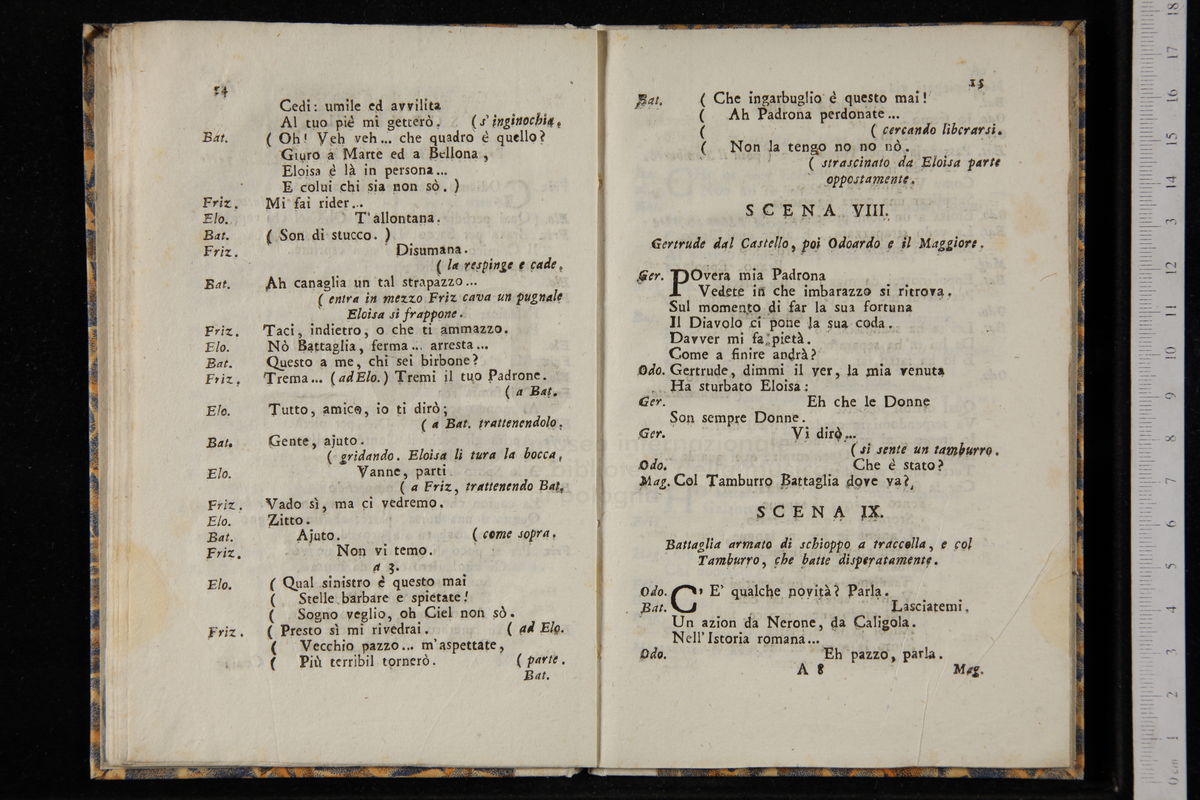 14
Cedi: umile ed avvilita
Al tuo piè mi getterò. ( s' inginochia.
Bat. ( Oh! Veh veh... che quadro è quello?
Giuro a Marte ed a Bellona,
Eloisa è là in persona...
E colui chi sia non sò. )
Friz. Mi fai rider...
Elo. T'allontana.
Bat. ( Son di stucco. )
Friz. Disumana.
( la respinge e cade.
Bat. Ah canaglia un tal strapazzo...
( entra in mezzo Friz cava un pugnale
Eloisa si frappone.
Friz. Taci, indietro, o che ti ammazzo.
Elo. Nò Battaglia, ferma... arresta...
Bat. Questo a me, chi sei birbone?
Friz. Trema... (ad Elo.) Tremi il tuo Padrone.
( a Bat.
Elo. Tutto, amico, io ti dirò;
( a Bat. trattenendolo.
Bat. Gente, ajuto.
( gridando. Eloisa li tura la bocca.
Elo. Vanne, parti
( a Friz, trattenendo Bat.
Friz. Vado sì, ma ci vedremo.
Elo. Zitto.
Bat. Ajuto. ( come sopra.
Friz. Non vi temo.
a 3.
Elo. ( Qual sinistro è questo mai
( Stelle barbare e spietate!
( Sogno veglio, oh Ciel non sò.
Friz. ( Presto sì mi rivedrai. ( ad Elo.
( Vecchio pazzo... m'aspettate,
( Più terribil tornerò. ( parte.
Bat.
15
Bat. ( Che ingarbuglio è questo mai!
( Ah Padrona perdonate...
( ( cercando liberarsi.
( Non la tengo no no nò.
( strascinato da Eloisa parte
oppostamente.
SCENA VIII.
Gertrude dal Castello, poi Odoardo e il Maggiore.
Ger. POvera mia Padrona
Vedete in che imbarazzo si ritrova.
Sul momento di far la sua fortuna
Il Diavolo ci pone la sua coda.
Davver mi fa pietà.
Come a finire andrà?
Odo. Gertrude, dimmi il ver, la mia venuta
Ha sturbato Eloisa:
Ger. Eh che le Donne
Son sempre Donne.
Ger. Vi dirò...
( si sente un tamburro.
Odo. Che è stato?
Mag. Col Tamburro Battaglia dove va?
SCENA IX.
Battaglia armato di schioppo a traccolla, e col
Tamburro, che batte disperatamente.
Odo. C' E' qualche novità? Parla.
Bat. Lasciatemi.
Un azion da Nerone, da Caligola.
Nell'Istoria romana...
Odo. Eh pazzo, parla.
A 8 Mag.